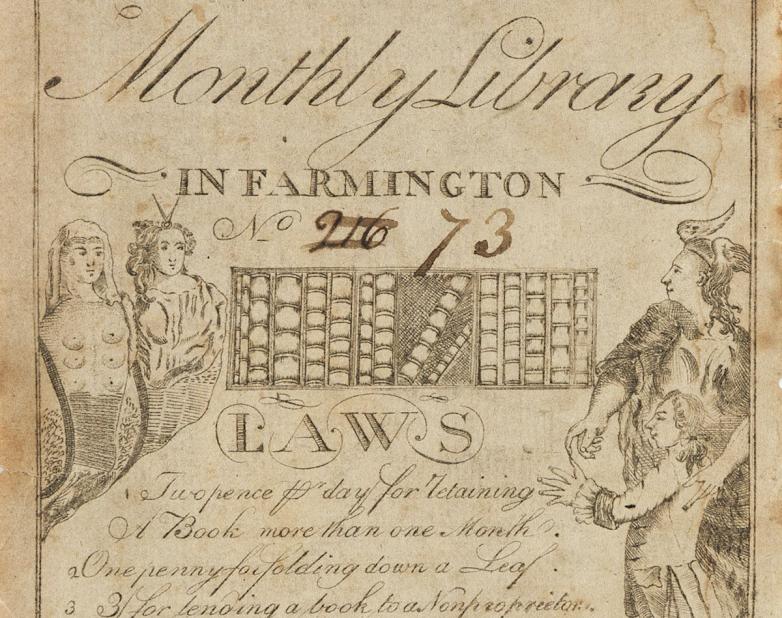 Monthly Library
IN FARMINGTON
No 216 73
LAWS
1 Twopence ⅌r day for retaining
A Book more than one Month.
2 One penny for folding down a Leaf.
3 3/ for lending a book to a Nonproprietor.